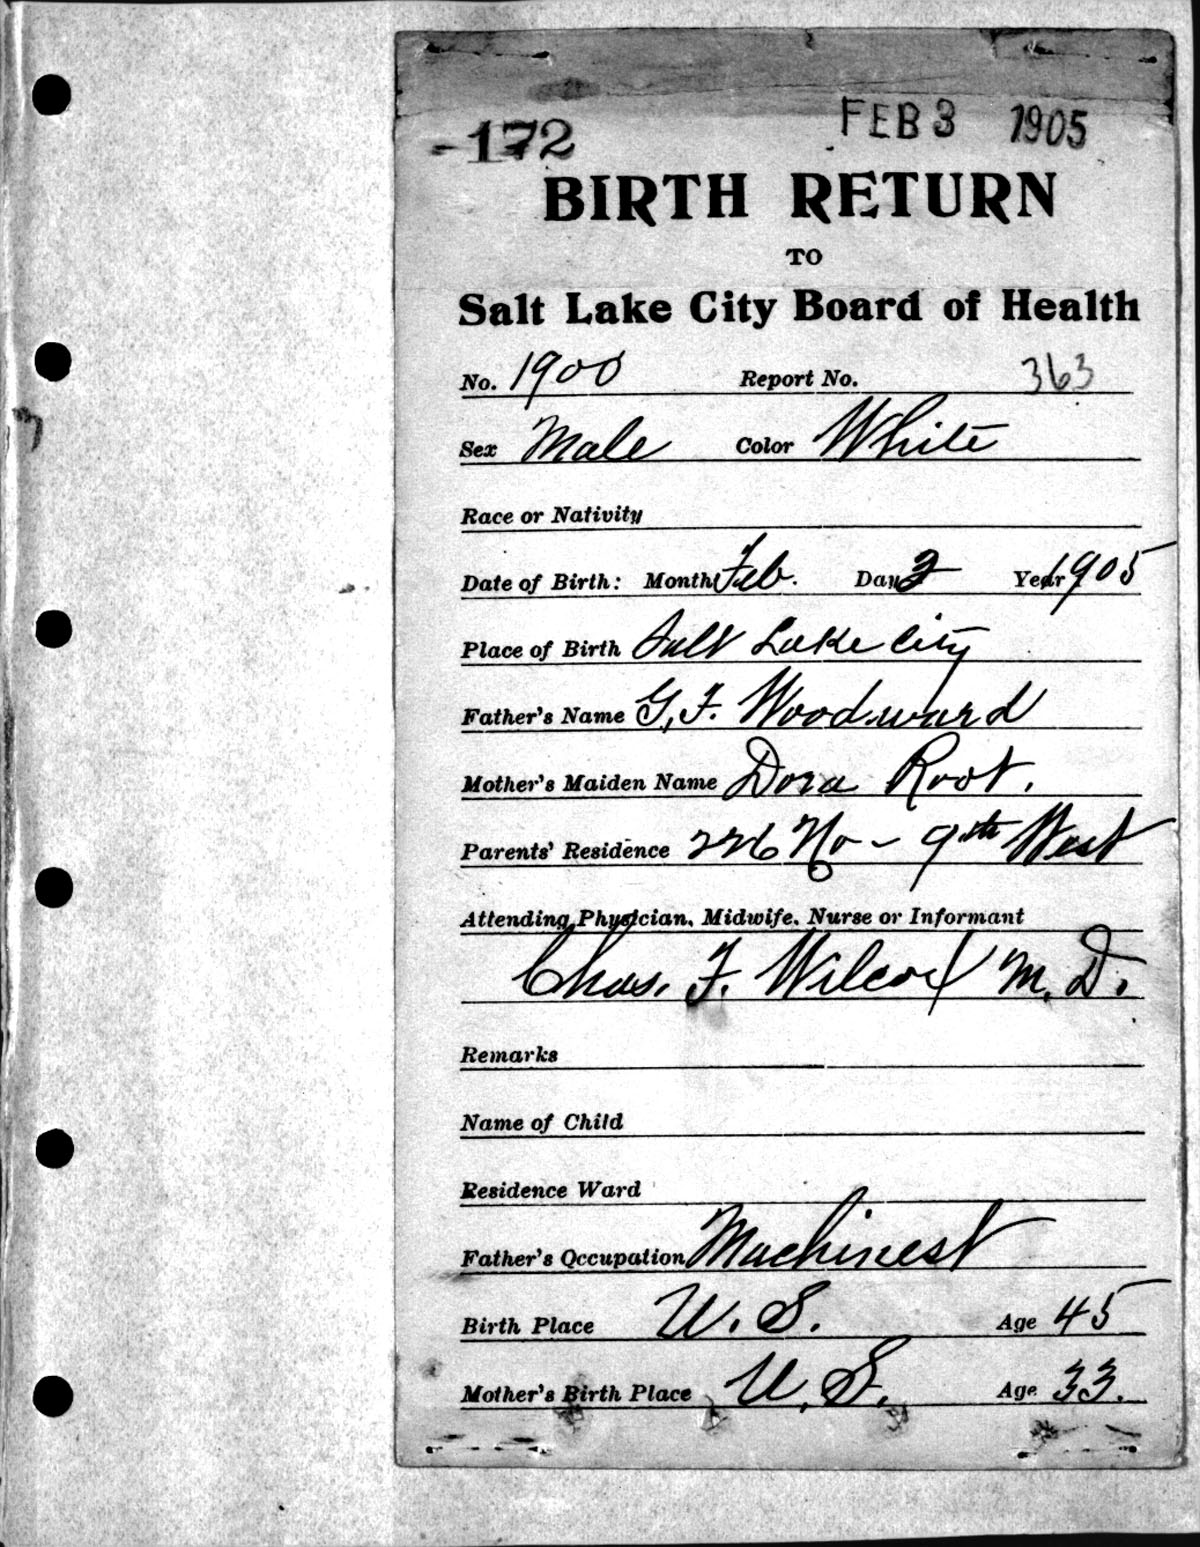 -172 FEB 3 1905
BIRTH RETURN
TO
Salt Lake City Board of Health
No. 1900 Report No. 363
Sex Male Color White
Race or Nativity
Date of Birth: Month Feb. Day 2 Year 1905
Place of Birth Salt Lake City
Father's Name G. F. Woodward
Mother's Maiden Name Dora Root.
Parents' Residence 226 No - 9th West
Attending Physician, Midwife, Nurse or Informant
Chas. F. Wilcox M. D.
Remarks
Name of Child
Residence Ward
Father's Occupation Machinest
Birth Place U. S. Age 45
Mother's Birth Place U. S. Age 33.